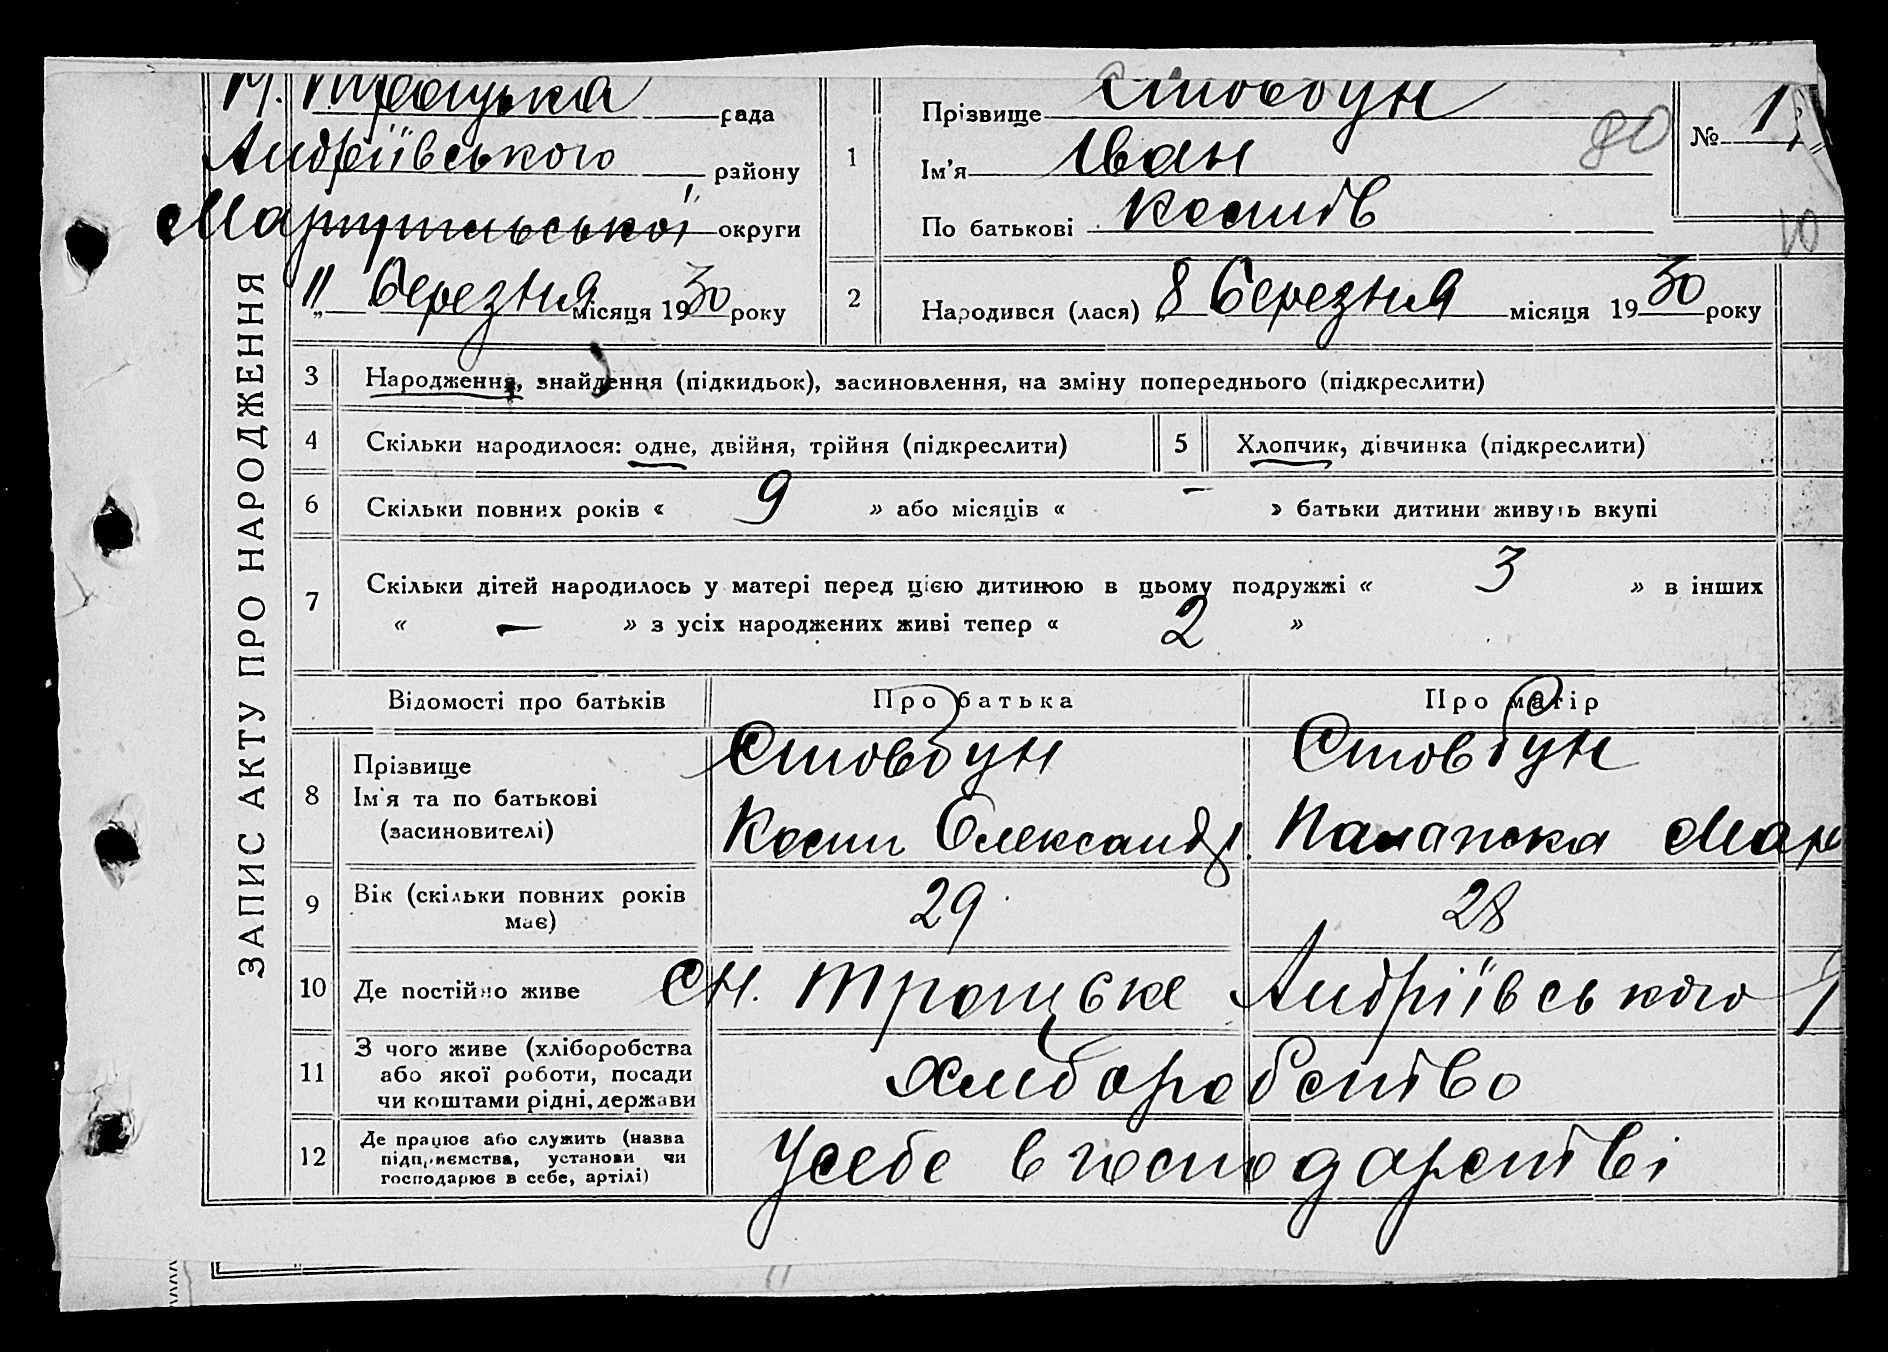 М. Троцька рада
Андріївського району
Маріупільської округи
„11 березня місяця 1930 року
1
Прізвище Стовбун
Ім'я Іван
По батькові Костів
№ 1
80
10
2
Народився (лася) „8 березня місяця 1930 року
ЗАПИС АКТУ ПРО НАРОДЖЕННЯ
3 Народження, знайдення (підкидьок), засиновлення, на зміну попереднього (підкреслити)
4 Скільки народилося: одне, двійня, трійня (підкреслити)
5 Хлопчик, дівчинка (підкреслити)
6 Скільки повних років « 9 » або місяців « – » батьки дитини живуть вкупі
7 Скільки дітей народилось у матері перед цією дитиною в цьому подружжі « 3 » в інших
« – » з усіх народжених живі тепер « 2 »
Відомості про батьків Про батька Про матір
8 Прізвище Стовбун Стовбун
Ім'я та по батькові
(засновителі) Кости Олександр. Палажка Мар
9 Вік (скільки повних років
має) 29 28
10 Де постійно живе сн. Троцьке Андріївського
11 З чого живе (хліборобства
або якої роботи, посади
чи коштами рідні, держави
хліборобство
12 Де працює або служить (назва
підприємства, установи чи
господарює в себе, артілі)
Усебе в господарстві